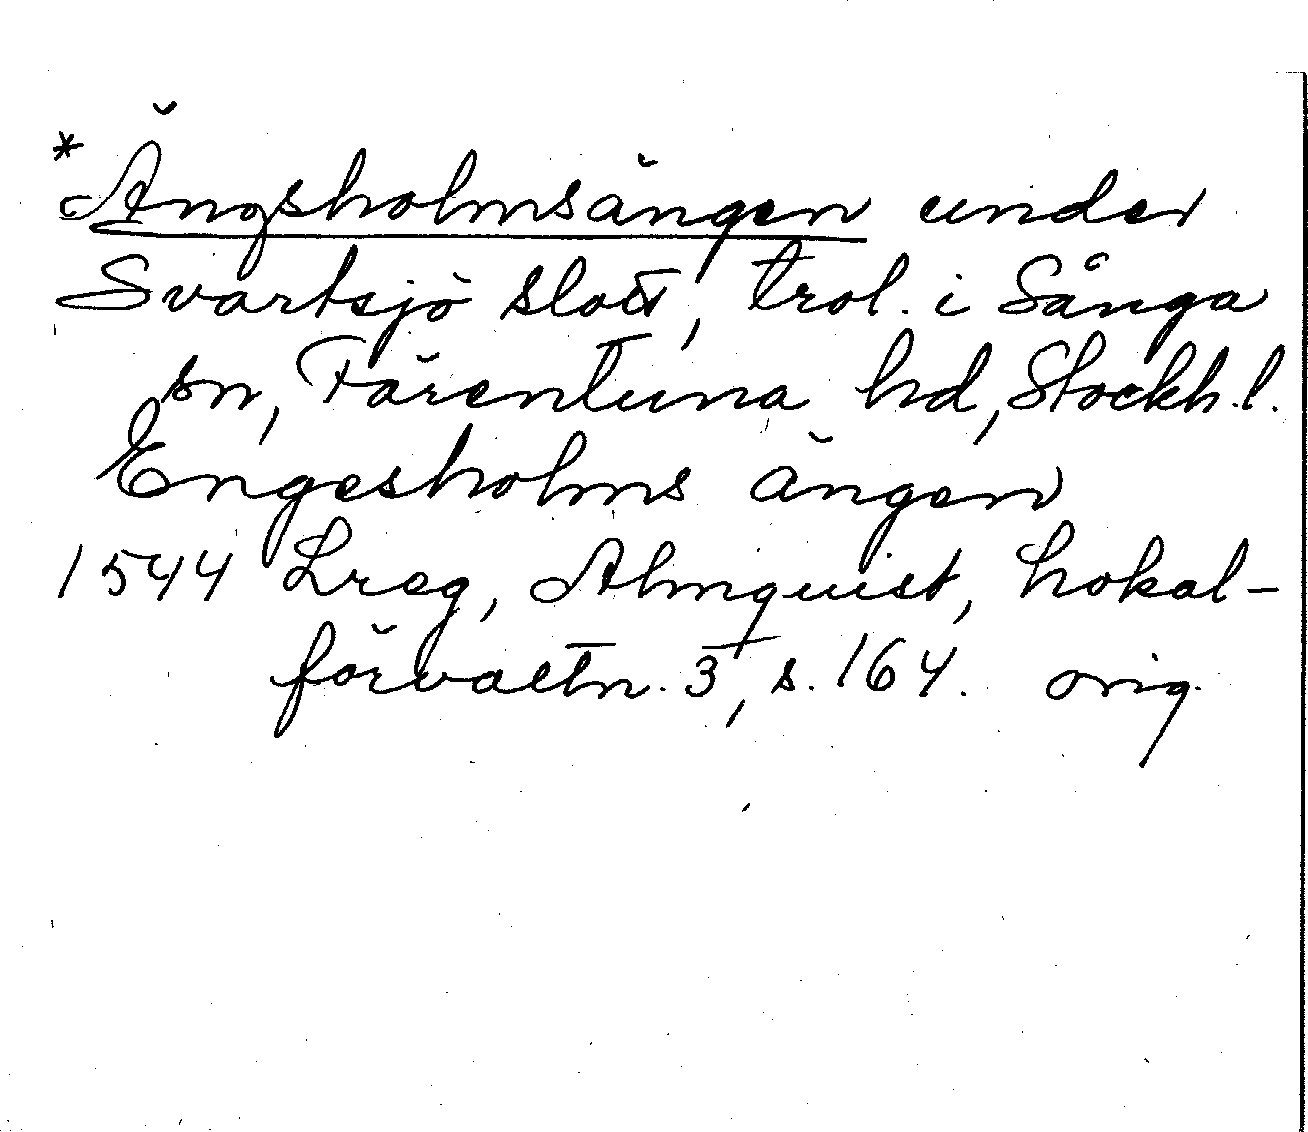 *Ängsholmsängen under
Svartsjö slott, trol. i Sånga
sn, Färentuna hd, Stockh. l.
Engesholms ängen
1544 Lreg, Almquist, Lokal-
förvaltn. 3, s. 164. orig.